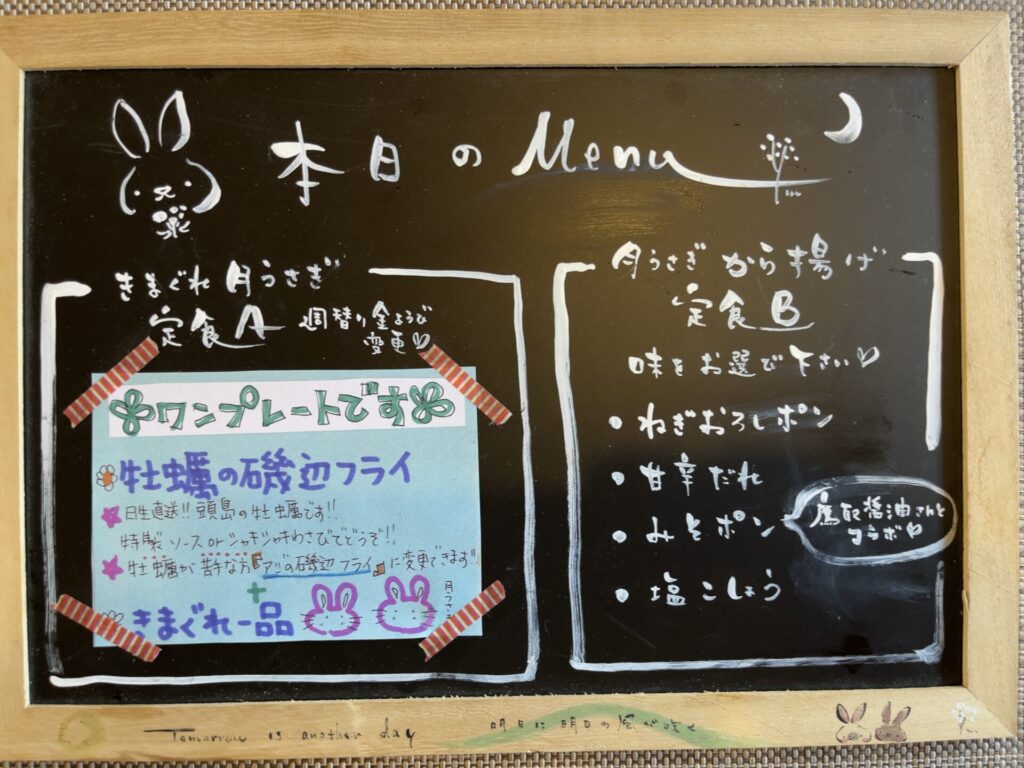 本日のMenu
きまぐれ月うさぎ
定食A 週替り金ようび
変更♡
ワンプレートです
牡蠣の磯辺フライ
日生直送!!頭島の牡蠣です!!
特製ソースorシャキシャキわさびでどうぞ!!
牡蠣が苦手な方『アジの磯辺フライ』に変更できます
+
きまぐれ一品
月うさぎ
月うさぎから揚げ
定食B
味をお選び下さい♡
・ねぎおろしポン
・甘辛だれ
・みそポン
鷹取醤油さんと
コラボ
・塩こしょう
Tomorrow is another day
明日は明日の風が吹く